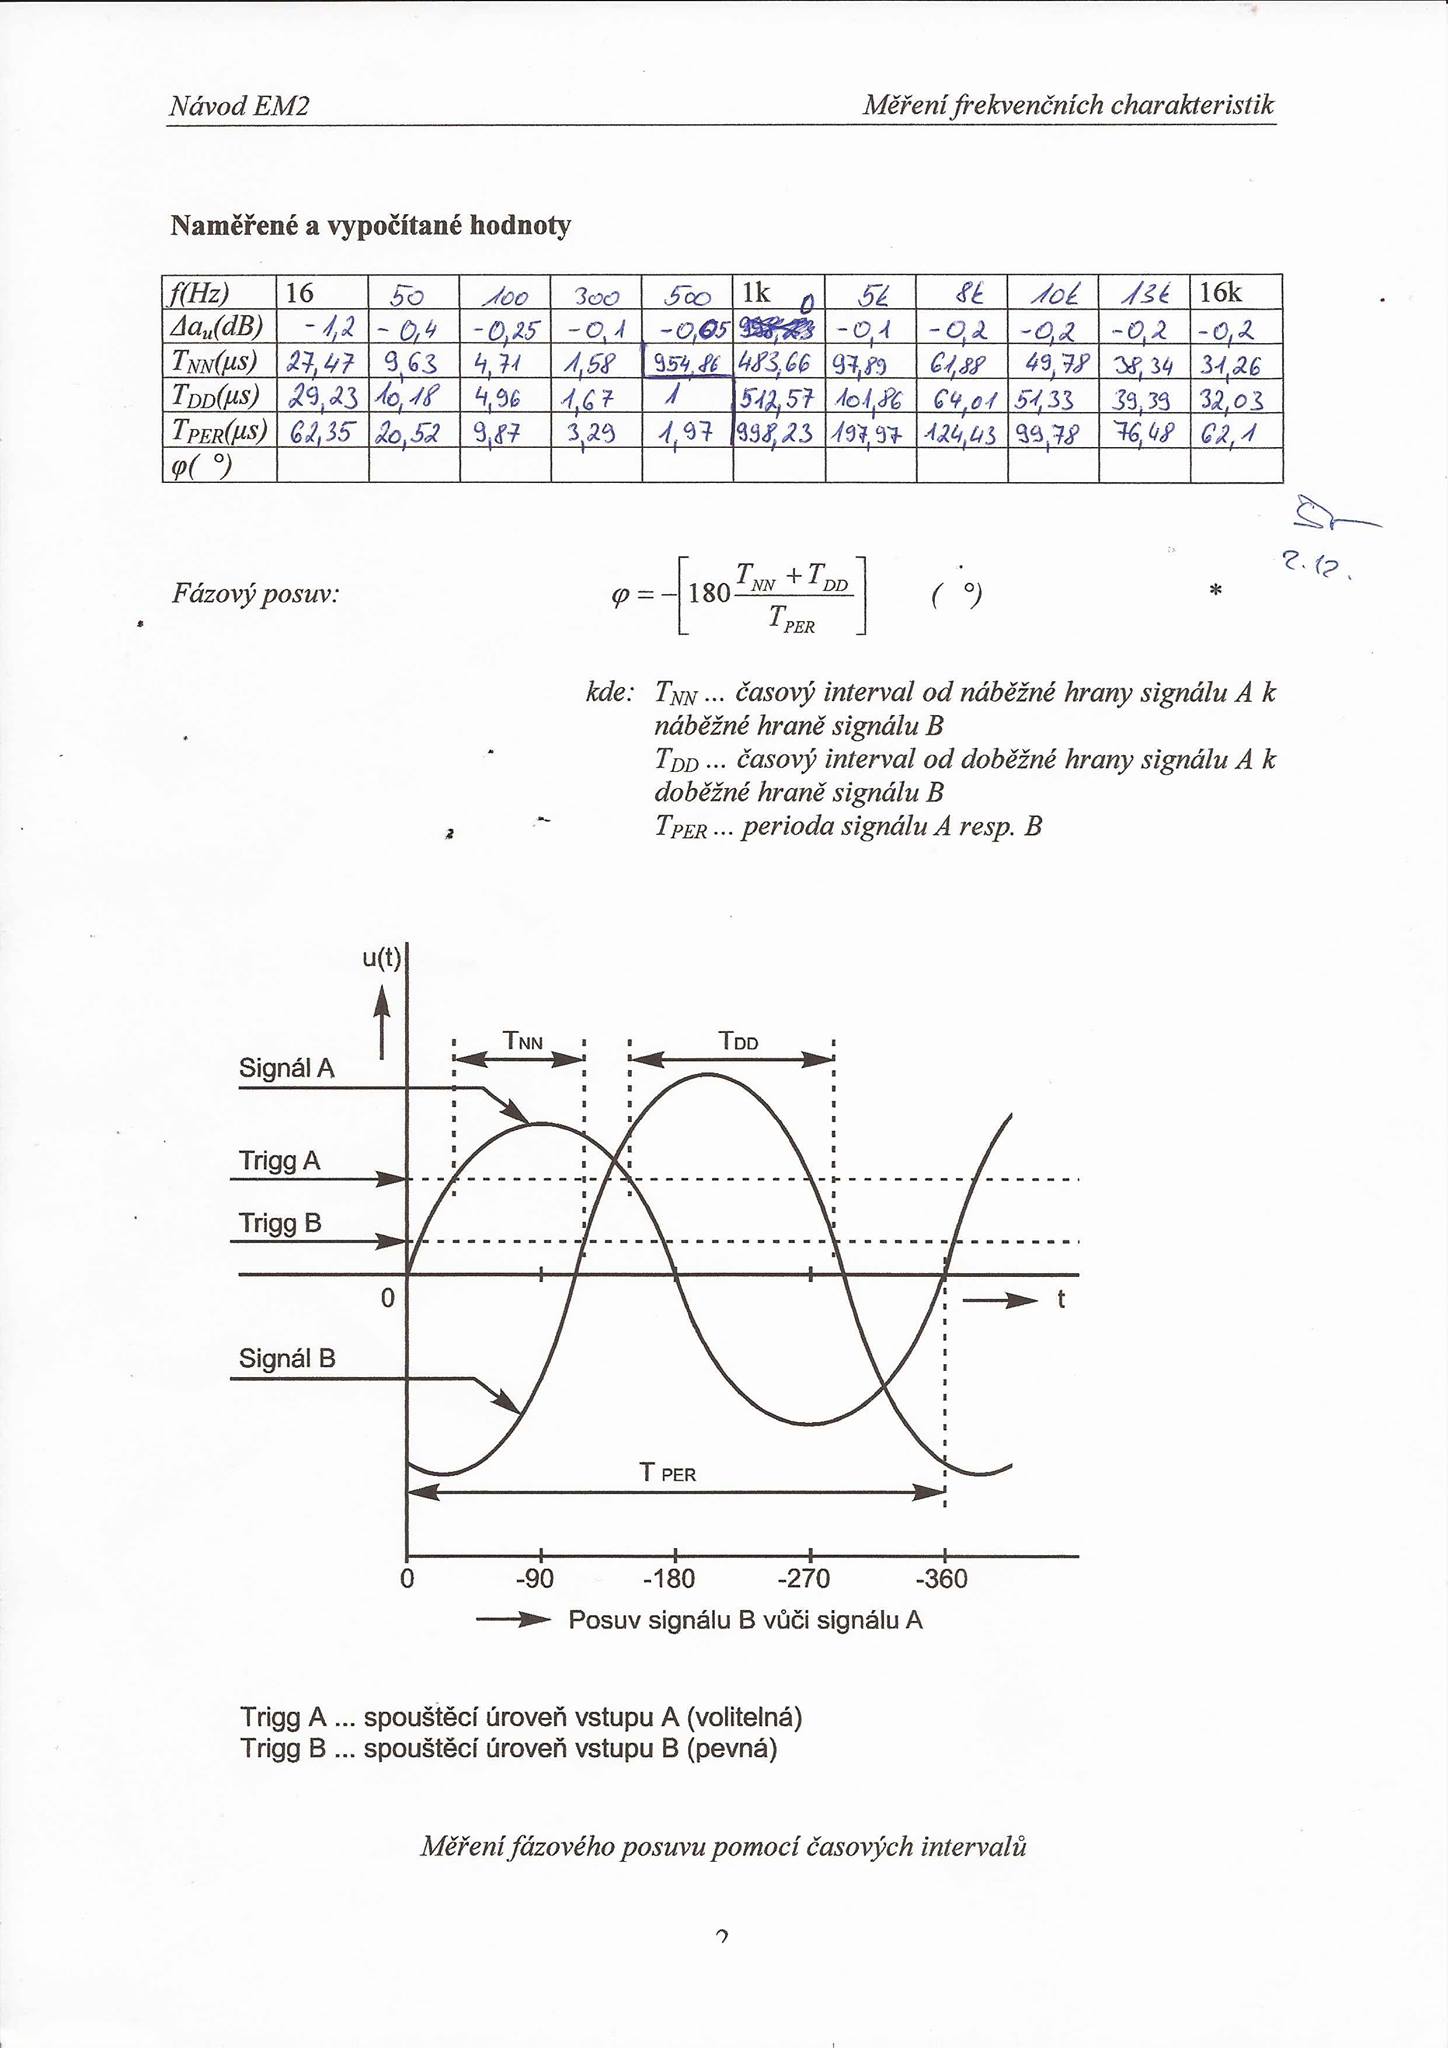 Návod EM2 Měření frekvenčních charakteristik
Naměřené a vypočítané hodnoty
f(Hz) 16 50 100 300 500 1k 5k 8k 10k 13k 16k
Δau(dB) -1,2 -0,4 -0,25 -0,1 -0,05 0 -0,1 -0,2 -0,2 -0,2 -0,2
TNN(μs) 27,47 9,63 4,71 1,58 954,86 483,66 97,89 61,88 49,78 38,34 31,26
TDD(μs) 29,23 10,18 4,96 1,67 1 512,57 101,86 64,01 51,33 39,39 32,03
TPER(μs) 62,35 20,52 9,87 3,29 1,97 998,23 197,97 124,43 99,78 76,48 62,1
φ( °)
2.12.
Fázový posuv: φ = −[180 (TNN + TDD) / TPER] ( °) *
kde: TNN ... časový interval od náběžné hrany signálu A k
náběžné hraně signálu B
TDD ... časový interval od doběžné hrany signálu A k
doběžné hraně signálu B
TPER ... perioda signálu A resp. B
u(t)
TNN TDD
Signál A
Trigg A
Trigg B
0 t
Signál B
T PER
0 -90 -180 -270 -360
Posuv signálu B vůči signálu A
Trigg A ... spouštěcí úroveň vstupu A (volitelná)
Trigg B ... spouštěcí úroveň vstupu B (pevná)
Měření fázového posuvu pomocí časových intervalů